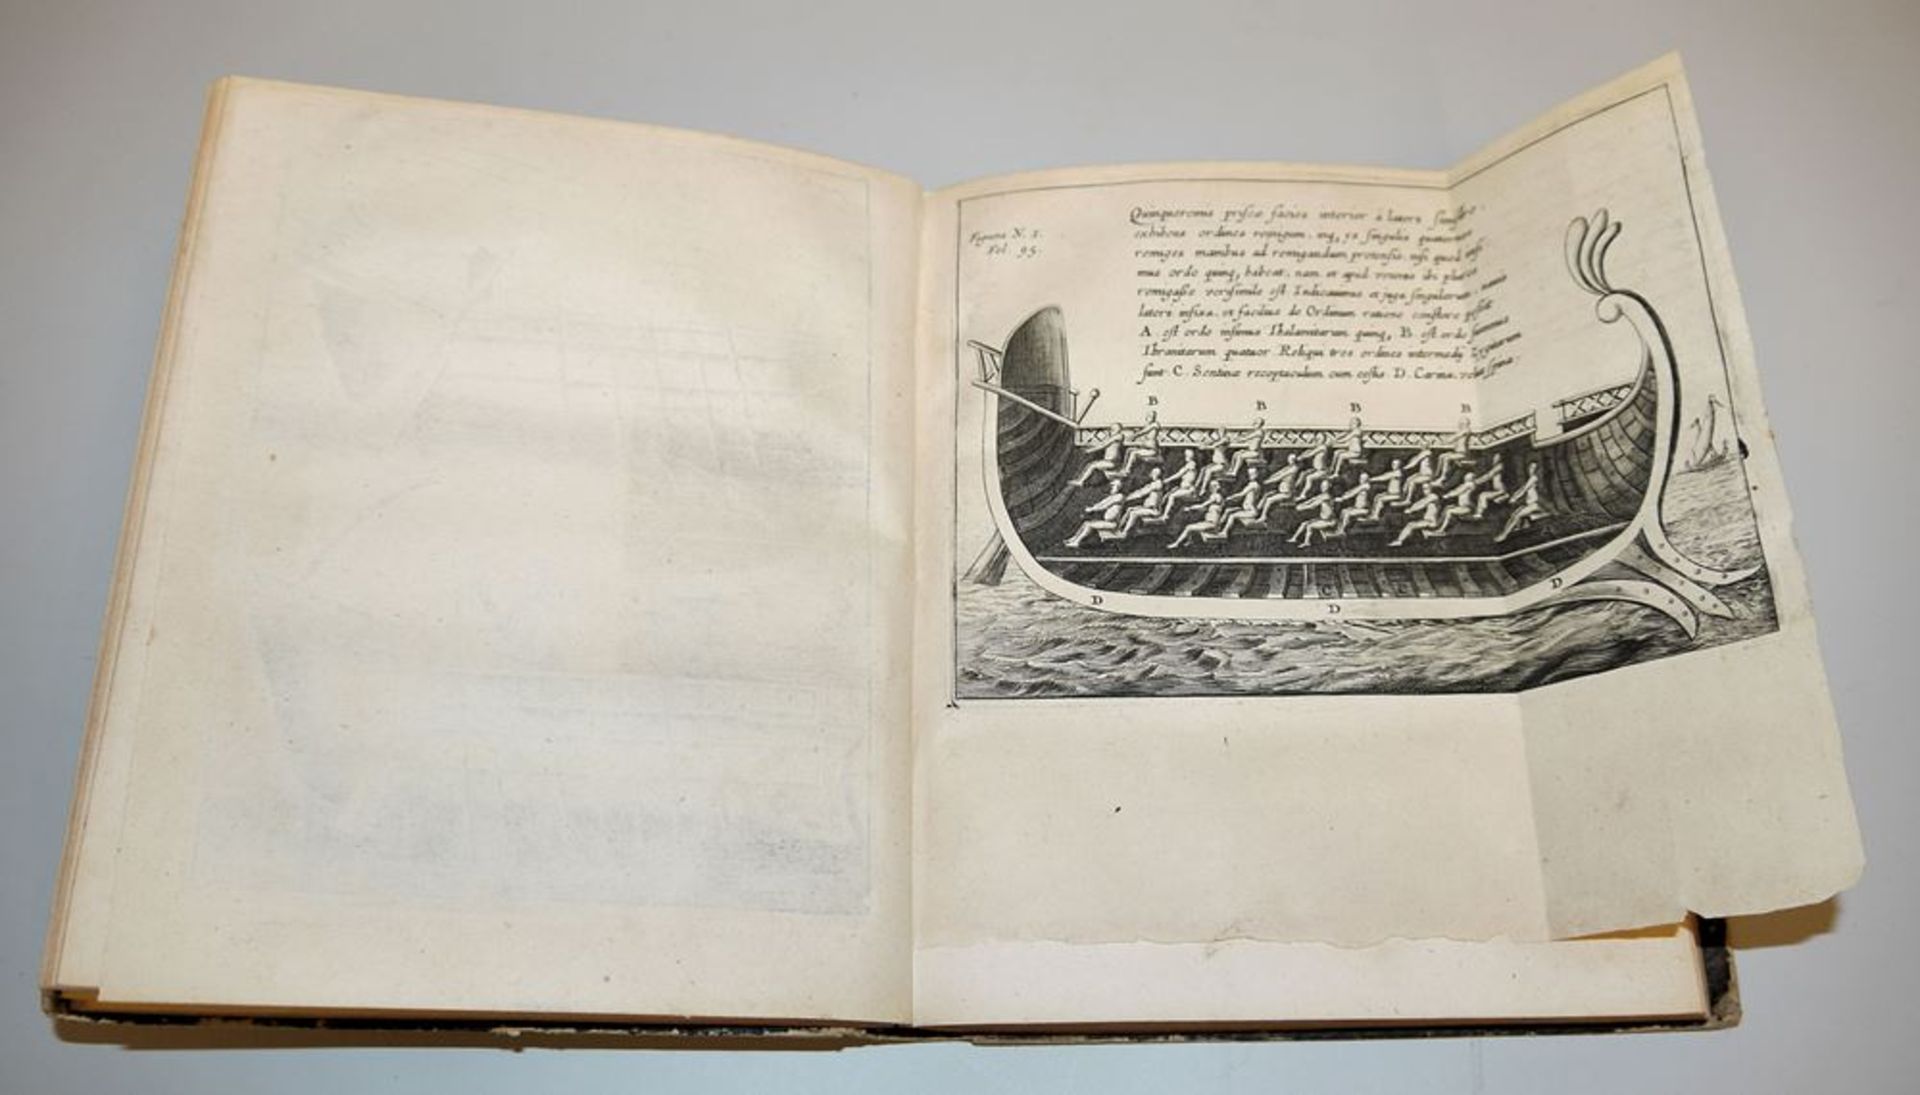 Figura N. I.
Fol. 95.
Quinqueremis priscæ facies interior a latere
exhibens ordines remigum. inq, ys singulis
remiges manibus ad remigandum protensis. nisi quod
mus ordo quinq, habeat. nam et apud veteres ibi
remigasse verisimile est Indicauimus et juga singulorum
lateri infixa. ut facilius de Ordinum ratione constare possit
A est ordo infimus Thalamitarum quinq, B. est ordo summus
Thranitarum quatuor Reliqui tres ordines intermedij Zygitarum
sunt. C. Sentinæ receptaculum cum costis. D. Carina. spina.
B B B B
C C
D D D
A